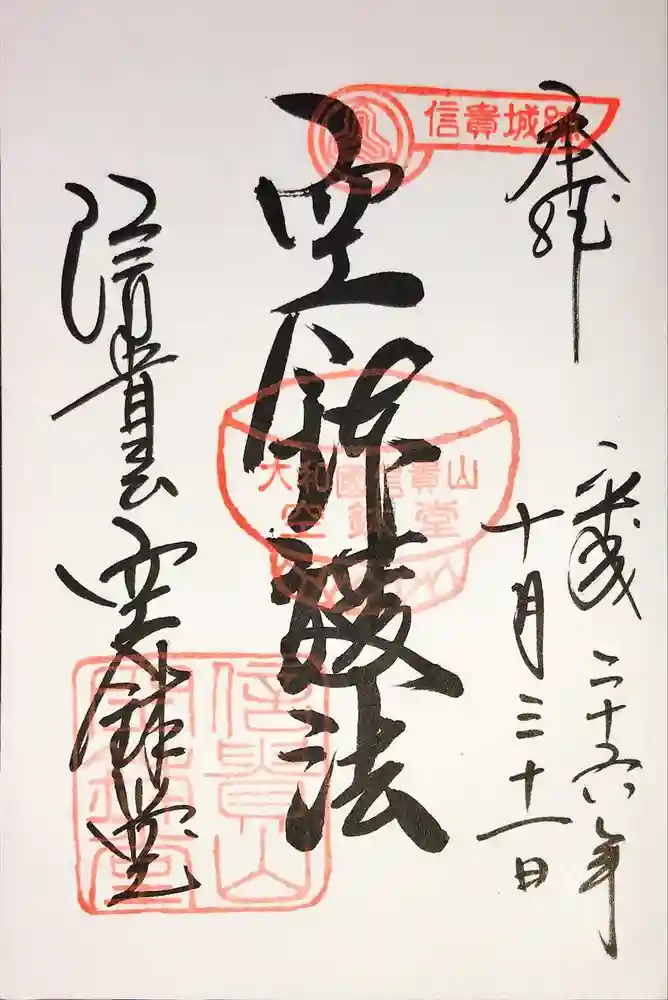 奉拝
平成二十六年
十月三十一日
空鉢護法
信貴山
空鉢堂
信貴城跡
大和國信貴山
空鉢堂
信貴山
空鉢堂